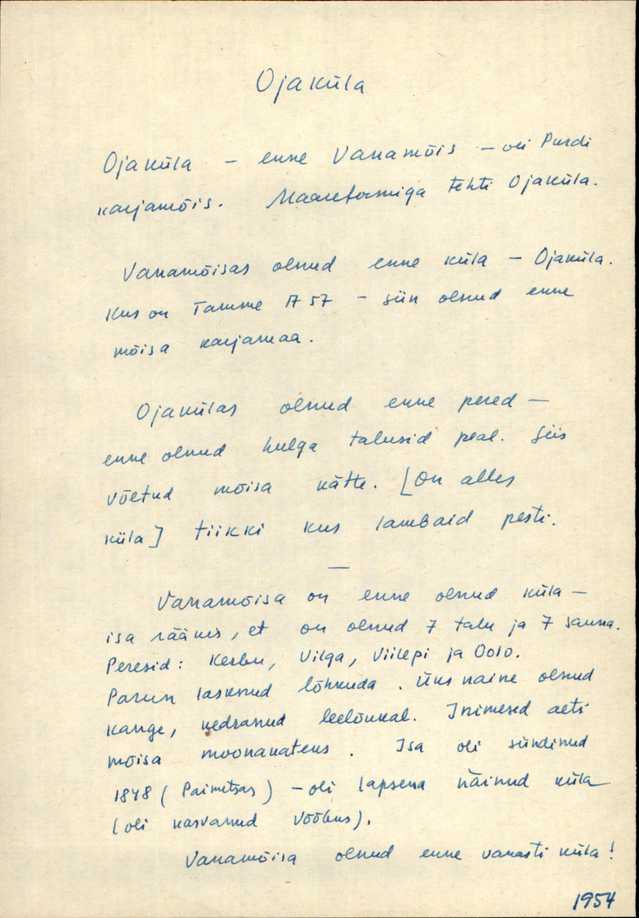 Ojaküla
Ojaküla – enne Vanamõis – oli Purdi
karjamõis. Maareformiga tehti Ojaküla.
Vanamõisas olnud enne küla – Ojaküla.
Kus on Tamme A 57 – siin olnud enne
mõisa karjamaa.
Ojakülas olnud enne pered –
enne olnud hulga talusid peal. Siis
võetud mõisa kätte. [On alles
küla] tiikki kus lambaid pesti.
—
Vanamõisa on enne olnud küla –
isa rääkis, et on olnud 7 talu ja 7 sauna.
Peresid: Kerbu, Vilga, Viilepi ja Oolo.
Parun lasknud lõhkuda. Üks naine olnud
kange, kedranud leelõukal. Inimesed aeti
mõisa moonakateks. Isa oli sündinud
1848 (Paimetsas) – oli lapsena näinud küla
(oli kasvanud Võõbus).
Vanamõisa olnud enne vanasti küla!
1954